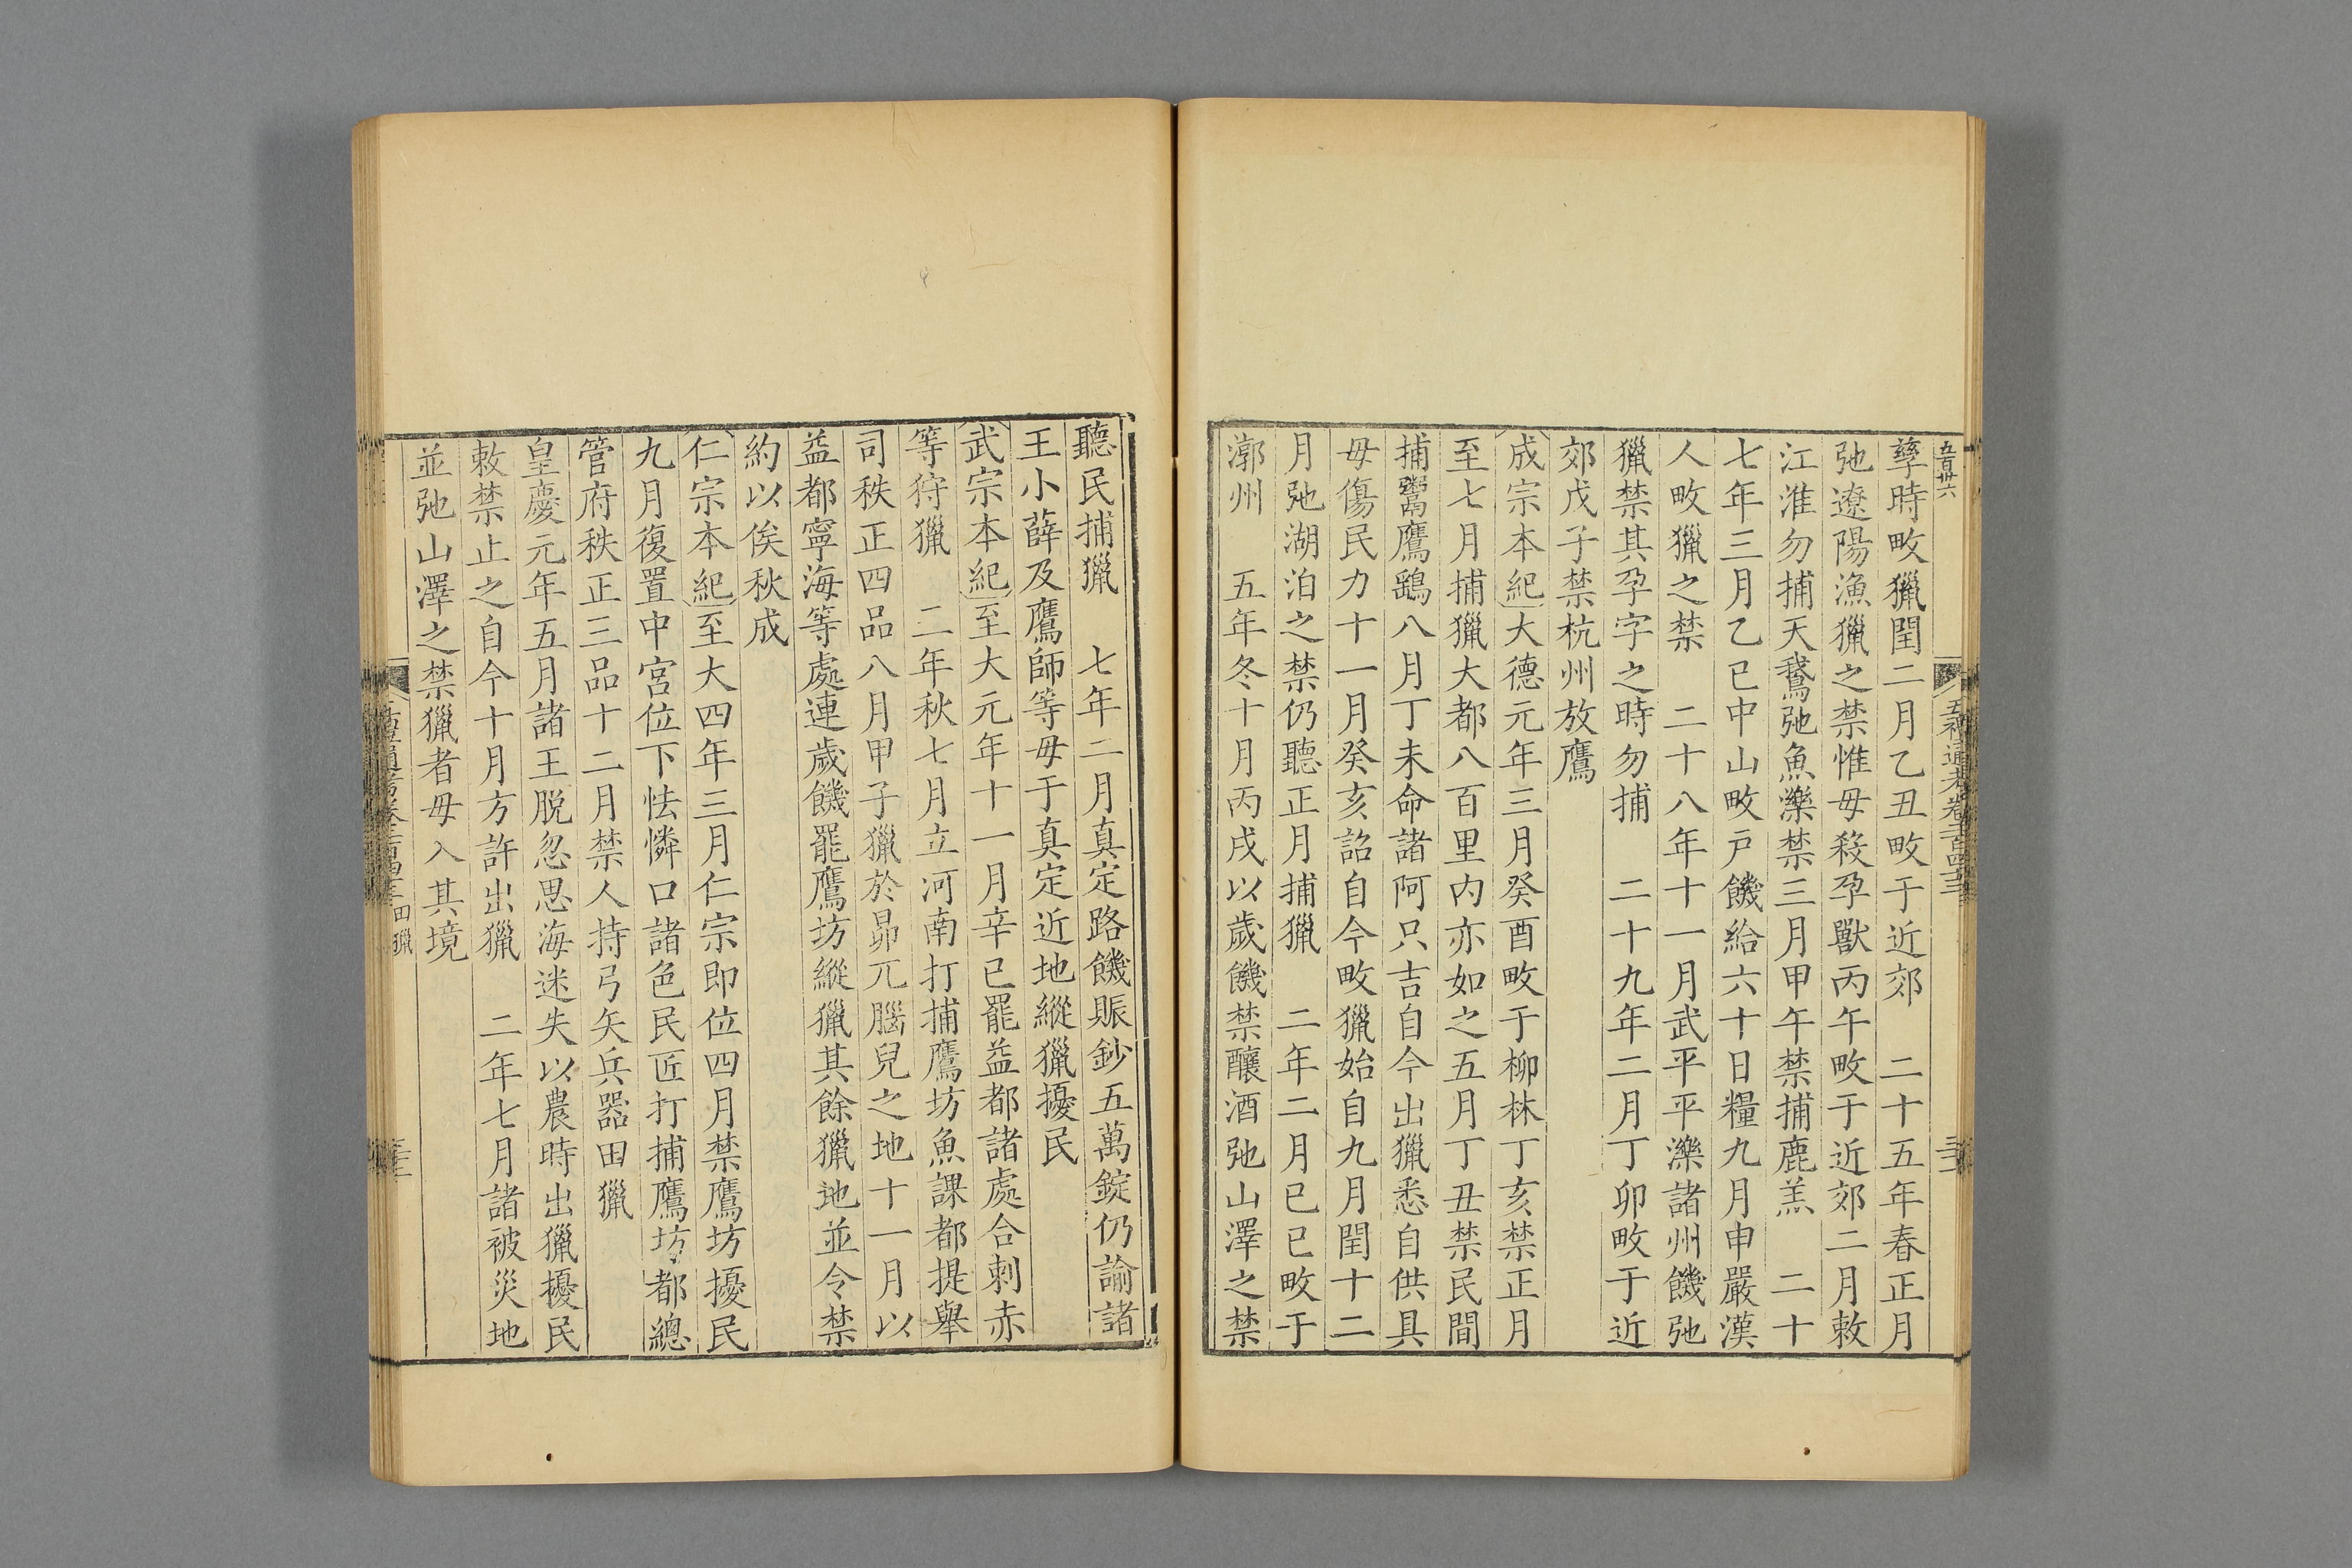 五百卅六
五禮通考卷二百四十三
孳時畋獵閏二月乙丑畋于近郊　二十五年春正月
弛遼陽漁獵之禁惟毋殺孕獸丙午畋于近郊二月敕
江淮勿捕天鵞弛魚濼禁三月甲午禁捕鹿羔　二十
七年三月乙巳中山畋戸饑給六十日糧九月申嚴漢
人畋獵之禁　二十八年十一月武平平灤諸州饑弛
獵禁其孕字之時勿捕　二十九年二月丁卯畋于近
郊戊子禁杭州放鷹
成宗本紀大德元年三月癸酉畋于柳林丁亥禁正月
至七月捕獵大都八百里内亦如之五月丁丑禁民間
捕鬻鷹鷂八月丁未命諸阿只吉自今出獵悉自供具
毋傷民力十一月癸亥詔自今畋獵始自九月閏十二
月弛湖泊之禁仍聽正月捕獵　二年二月己巳畋于
漷州　五年冬十月丙戌以歲饑禁釀酒弛山澤之禁
聽民捕獵　七年二月真定路饑賑鈔五萬錠仍諭諸
王小薛及鷹師等毋于真定近地縱獵擾民
武宗本紀至大元年十一月辛巳罷益都諸處合剌赤
等狩獵　二年秋七月立河南打捕鷹坊魚課都提舉
司秩正四品八月甲子獵於昴兀腦兒之地十一月以
益都寧海等處連歲饑罷鷹坊縱獵其餘獵地並令禁
約以俟秋成
仁宗本紀至大四年三月仁宗即位四月禁鷹坊擾民
九月復置中宮位下怯憐口諸色民匠打捕鷹坊都總
管府秩正三品十二月禁人持弓矢兵器田獵
皇慶元年五月諸王脱忽思海迷失以農時出獵擾民
敕禁止之自今十月方許出獵　二年七月諸被災地
並弛山澤之禁獵者毋入其境
田獵